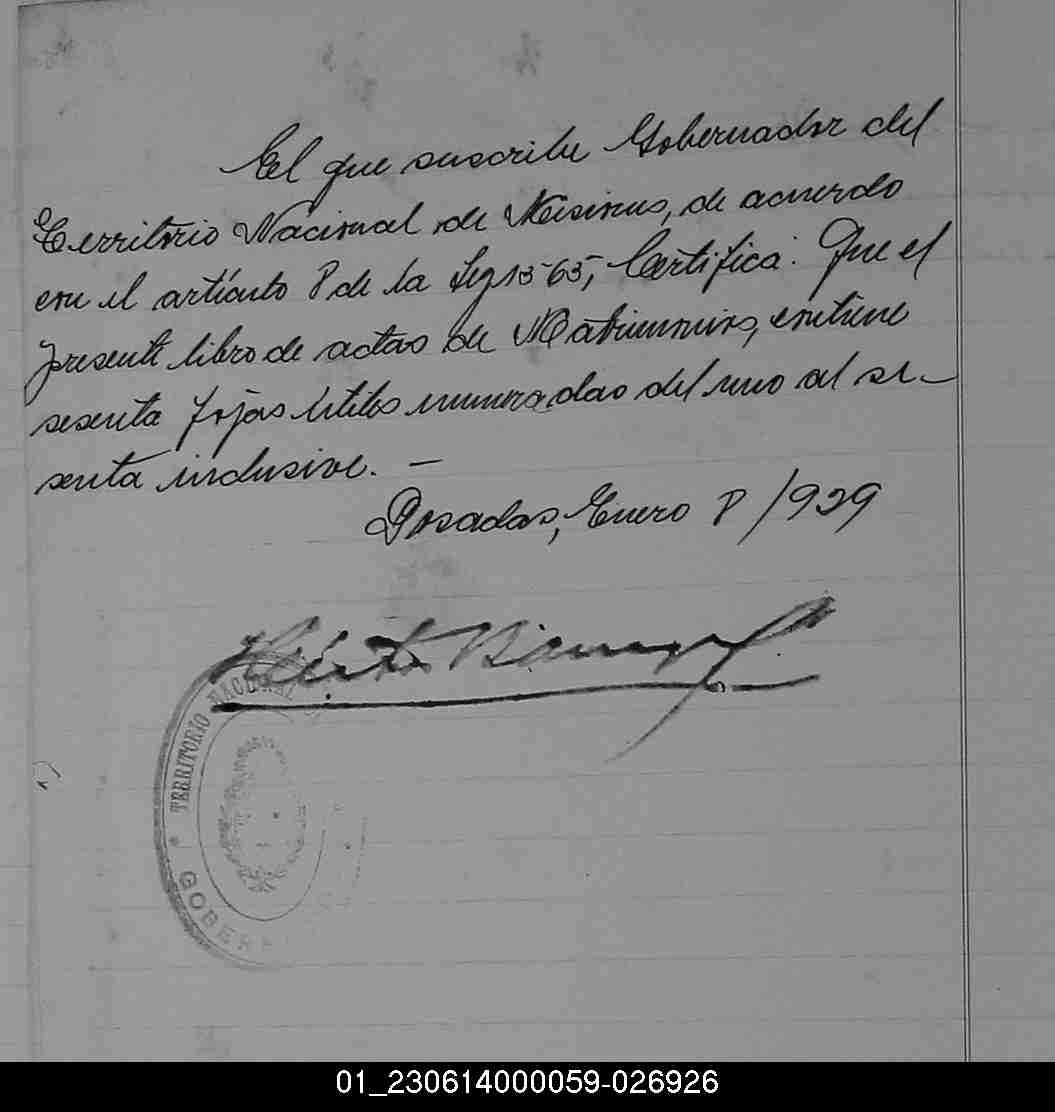 El que suscribe Gobernador del
Territorio Nacional de Misiones, de acuerdo
con el artículo 8 de la Ley 1565, Certifica: Que el
presente libro de actas de Matrimonios, contiene
sesenta fojas útiles numeradas del uno al se-
senta inclusive. —
Posadas, Enero 8/929
TERRITORIO NACIONAL
GOBER
01_230614000059-026926